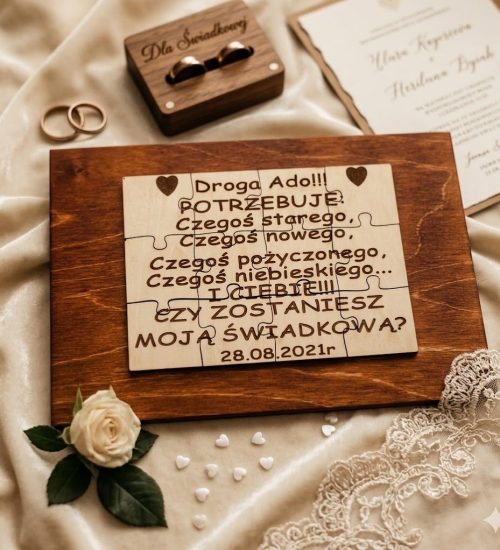 Dla Świadkowej
Droga Ado!!!
POTRZEBUJĘ:
Czegoś starego,
Czegoś nowego,
Czegoś pożyczonego,
Czegoś niebieskiego...
I CIEBIE!!!
CZY ZOSTANIESZ
MOJĄ ŚWIADKOWĄ?
28.08.2021r